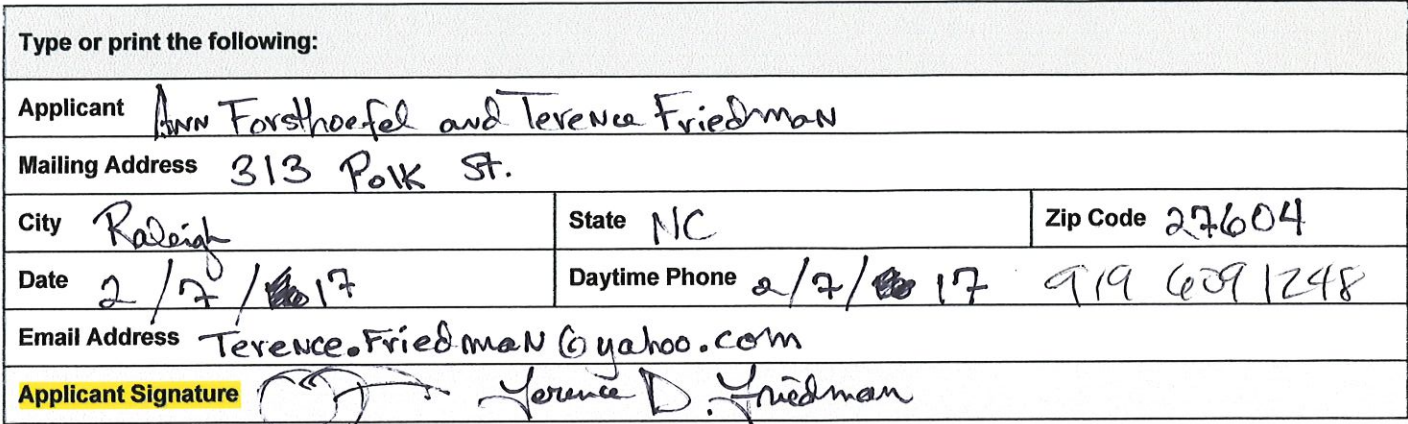 Type or print the following:
Applicant Ann Forsthoefel and Terence Friedman
Mailing Address 313 Polk St.
City Raleigh State NC Zip Code 27604
Date 2/7/17 Daytime Phone 2/7/17 919 6091248
Email Address Terence.Friedman@yahoo.com
Applicant Signature Terence D. Friedman